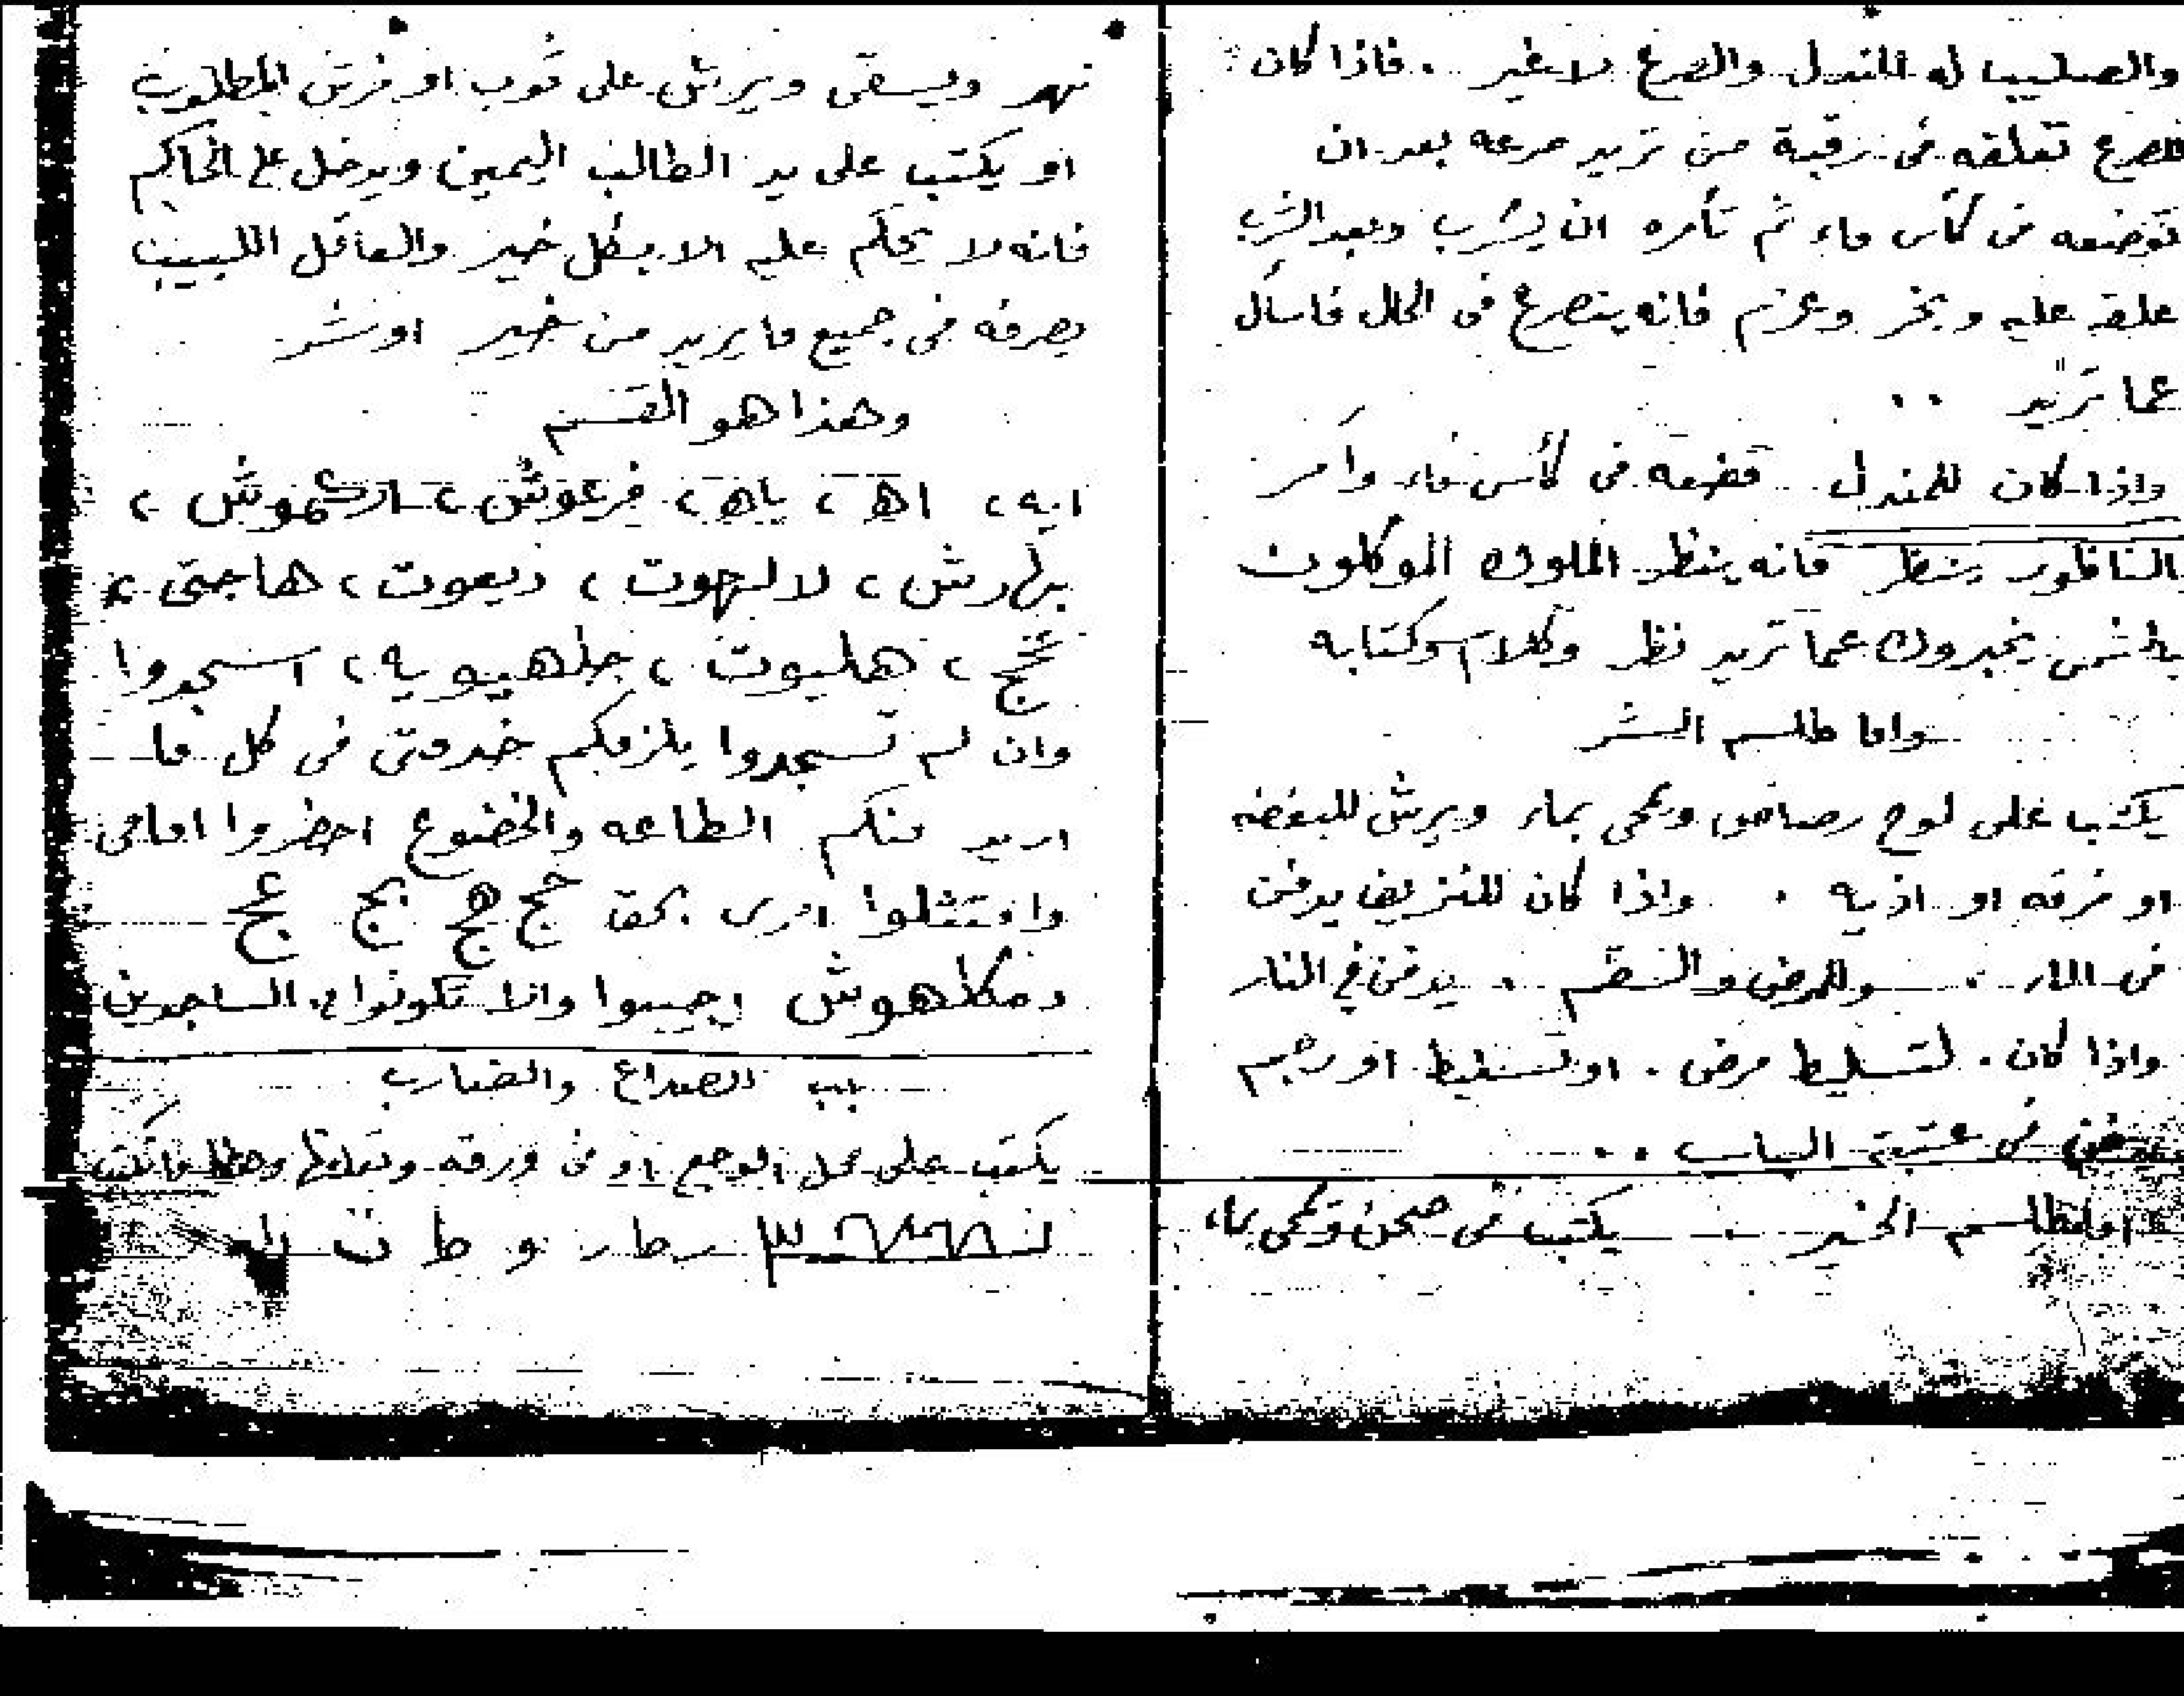 والصليب له للمندل والصرع لا غير . فاذا كان
للصرع تعلقه فى رقبة من تريد صرعه بعد ان
توضعه فى كأس ماء ثم تأمره ان يشرب وبعد الشرب
علقه عليه وبخر وعزم فانه ينصرع فى الحال فاسأل
عما تريد ..
واذا كان للمندل تضعه فى كأس ماء وأمر
الناظور ينظر فانه ينظر الملوك الموكلون
يخبروك عما تريد نظر وكلام وكتابه
واما طلسم الشر
يكتب على لوح رصاص ويمحى بماء ويرش للبغضه
او فرقه او اذيه . واذا كان للنزيف يدفن
فى الماء . وللمرض والسقم . يدفن في النار
واذا كان . لتسليط مرض . او تسليط او رجم
فى عتبة الباب ..
اما طلسم الخير . يكتب فى صحن ويمحى بماء
نهر ويسقى ويرش على ثوب او فرش المطلوب
او يكتب على يد الطالب اليمين ويدخل على الحاكم
فانه لا يحكم عليه الا بكل خير والعاقل اللبيب
يصرفه فى جميع ما يريد من خير او شر
وهذا هو القسم
ايه ، اه ، ياه ، فرعوش ، اركموش ،
بهارش ، لالهوت ، ديموت ، هاجتى ،
هليوت ، جلهيويه ، اسجدوا
وان لم تسجدوا يلزمكم خدمتى فى كل ما
اريد منكم الطاعه والخضوع احضروا امامى
وامتثلوا امرى بحق
دمكلهوش اجيبوا والا تكونوا من الساجدين
باب الصداع والضارب
يكتب على محل الوجع او فى ورقه وتعلقها وهذا ما تكتب
و ط ن